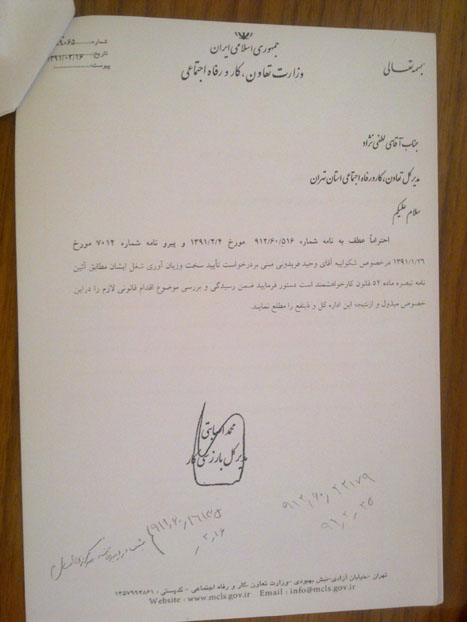 جمهوری اسلامی ایران
وزارت تعاون، کار و رفاه اجتماعی
بسمه تعالی
شماره
تاریخ ۱۳۹۱/۰۲/۲۶
پیوست
جناب آقای لطفی نژاد
مدیر کل تعاون، کار و رفاه اجتماعی استان تهران
سلام علیکم
احتراماً عطف به نامه شماره ۹۱۲/۶۰/۵۱۶ مورخ ۱۳۹۱/۲/۴ و پیرو نامه شماره ۷۰۱۲ مورخ
۱۳۹۱/۱/۲۶ درخصوص شکوائیه آقای وحید فریدونی مبنی بردرخواست تأیید سخت وزیان آوری شغل ایشان مطابق آئین
نامه تبصره ماده ۵۲ قانون کارخواهشمند است دستور فرمایید ضمن رسیدگی و بررسی موضوع اقدام قانونی لازم را دراین
خصوص مبذول و ازنتیجه این اداره کل و ذینفع را مطلع نمایند.
محمد اصابتی
مدیر کل بازرسی کار
۹۱۲٫۶۰٫۲۲۱۷۹
۹۱٫۲٫۳۵
تهران -خیابان آزادی-نبش بهبودی -وزارت تعاون ،کار و رفاه اجتماعی - کدپستی : ۱۴۵۷۹۹۳۸۶۱
Website : www.mcls.gov.ir Email : info@mcls.gov.ir